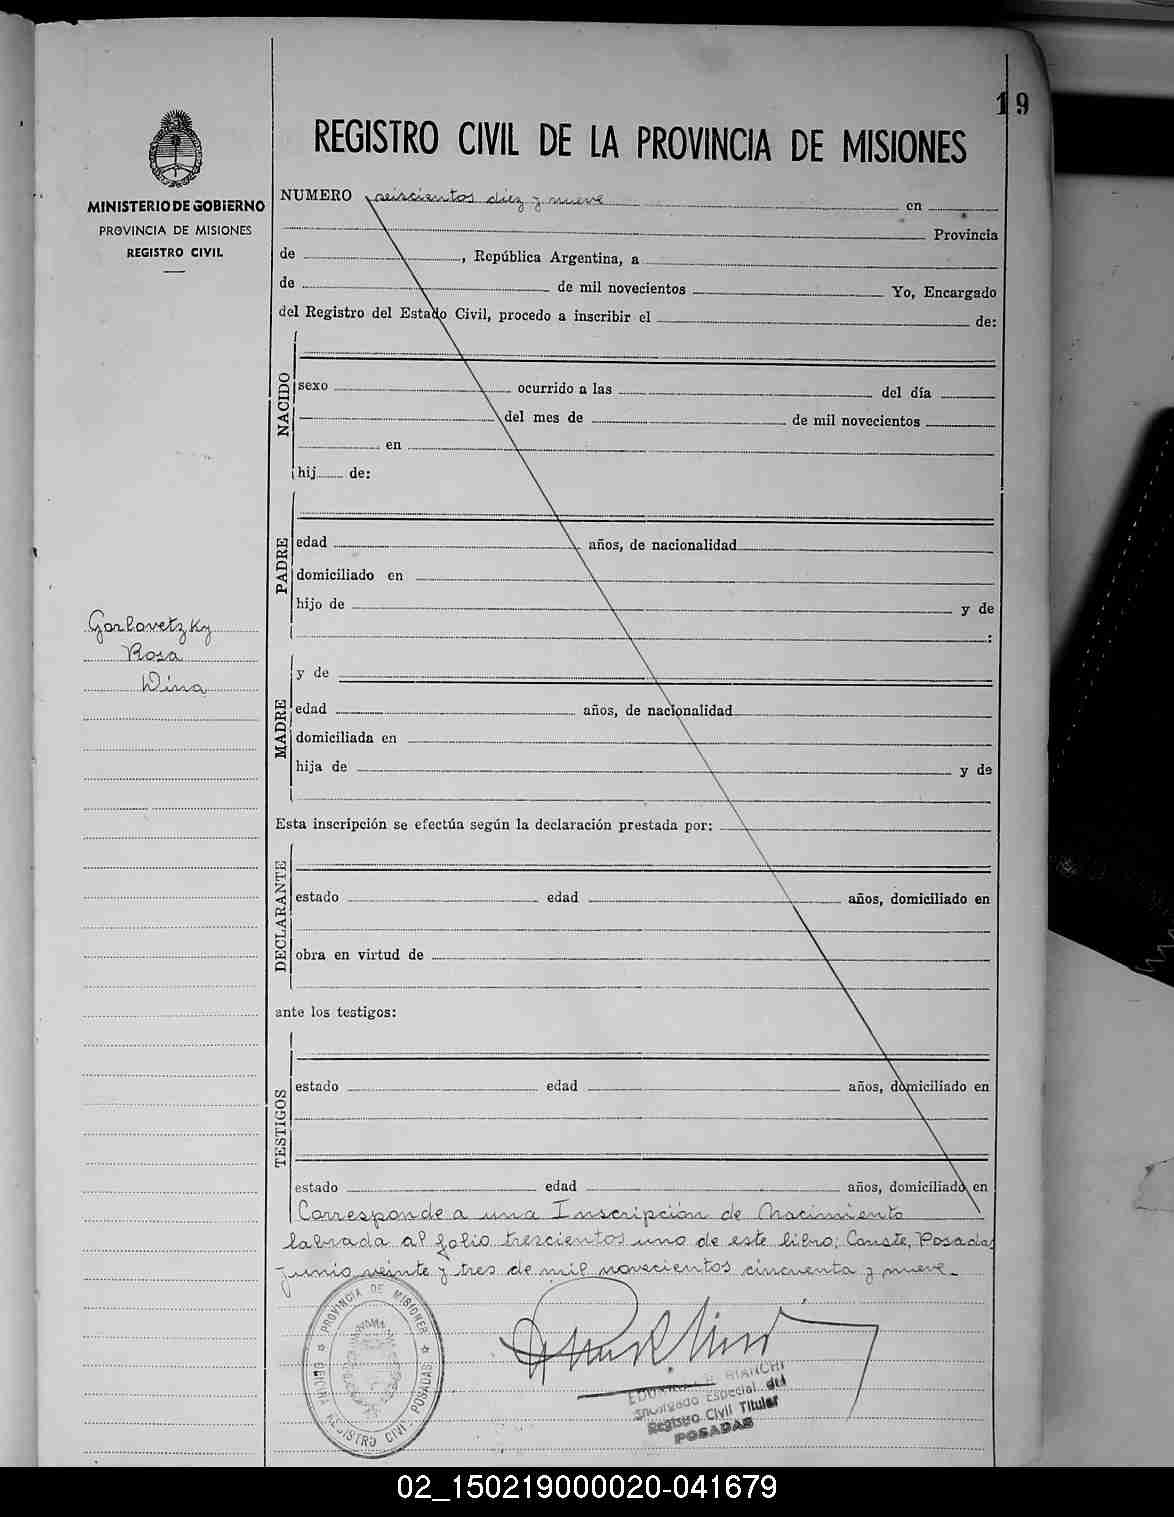 19
REGISTRO CIVIL DE LA PROVINCIA DE MISIONES
MINISTERIO DE GOBIERNO
PROVINCIA DE MISIONES
REGISTRO CIVIL
NUMERO seiscientos diez y nueve en
Provincia
de , República Argentina, a
de de mil novecientos Yo, Encargado
del Registro del Estado Civil, procedo a inscribir el de:
NACIDO
sexo ocurrido a las del día
del mes de de mil novecientos
en
hij de:
PADRE
edad años, de nacionalidad
domiciliado en
hijo de y de
:
Gorlovetzky
Rosa
Dina
MADRE
y de
edad años, de nacionalidad
domiciliada en
hija de y de
Esta inscripción se efectúa según la declaración prestada por:
DECLARANTE
estado edad años, domiciliado en
obra en virtud de
ante los testigos:
TESTIGOS
estado edad años, domiciliado en
estado edad años, domiciliado en
Corresponde a una Inscripción de Nacimiento
labrada al folio trescientos uno de este libro; Conste, Posadas,
junio veinte y tres de mil novecientos cincuenta y nueve.
PROVINCIA DE MISIONES
OFICINA REGISTRO CIVIL POSADAS
BIANCHI
Encargado Especial del
Registro Civil Titular
POSADAS
02_150219000020-041679